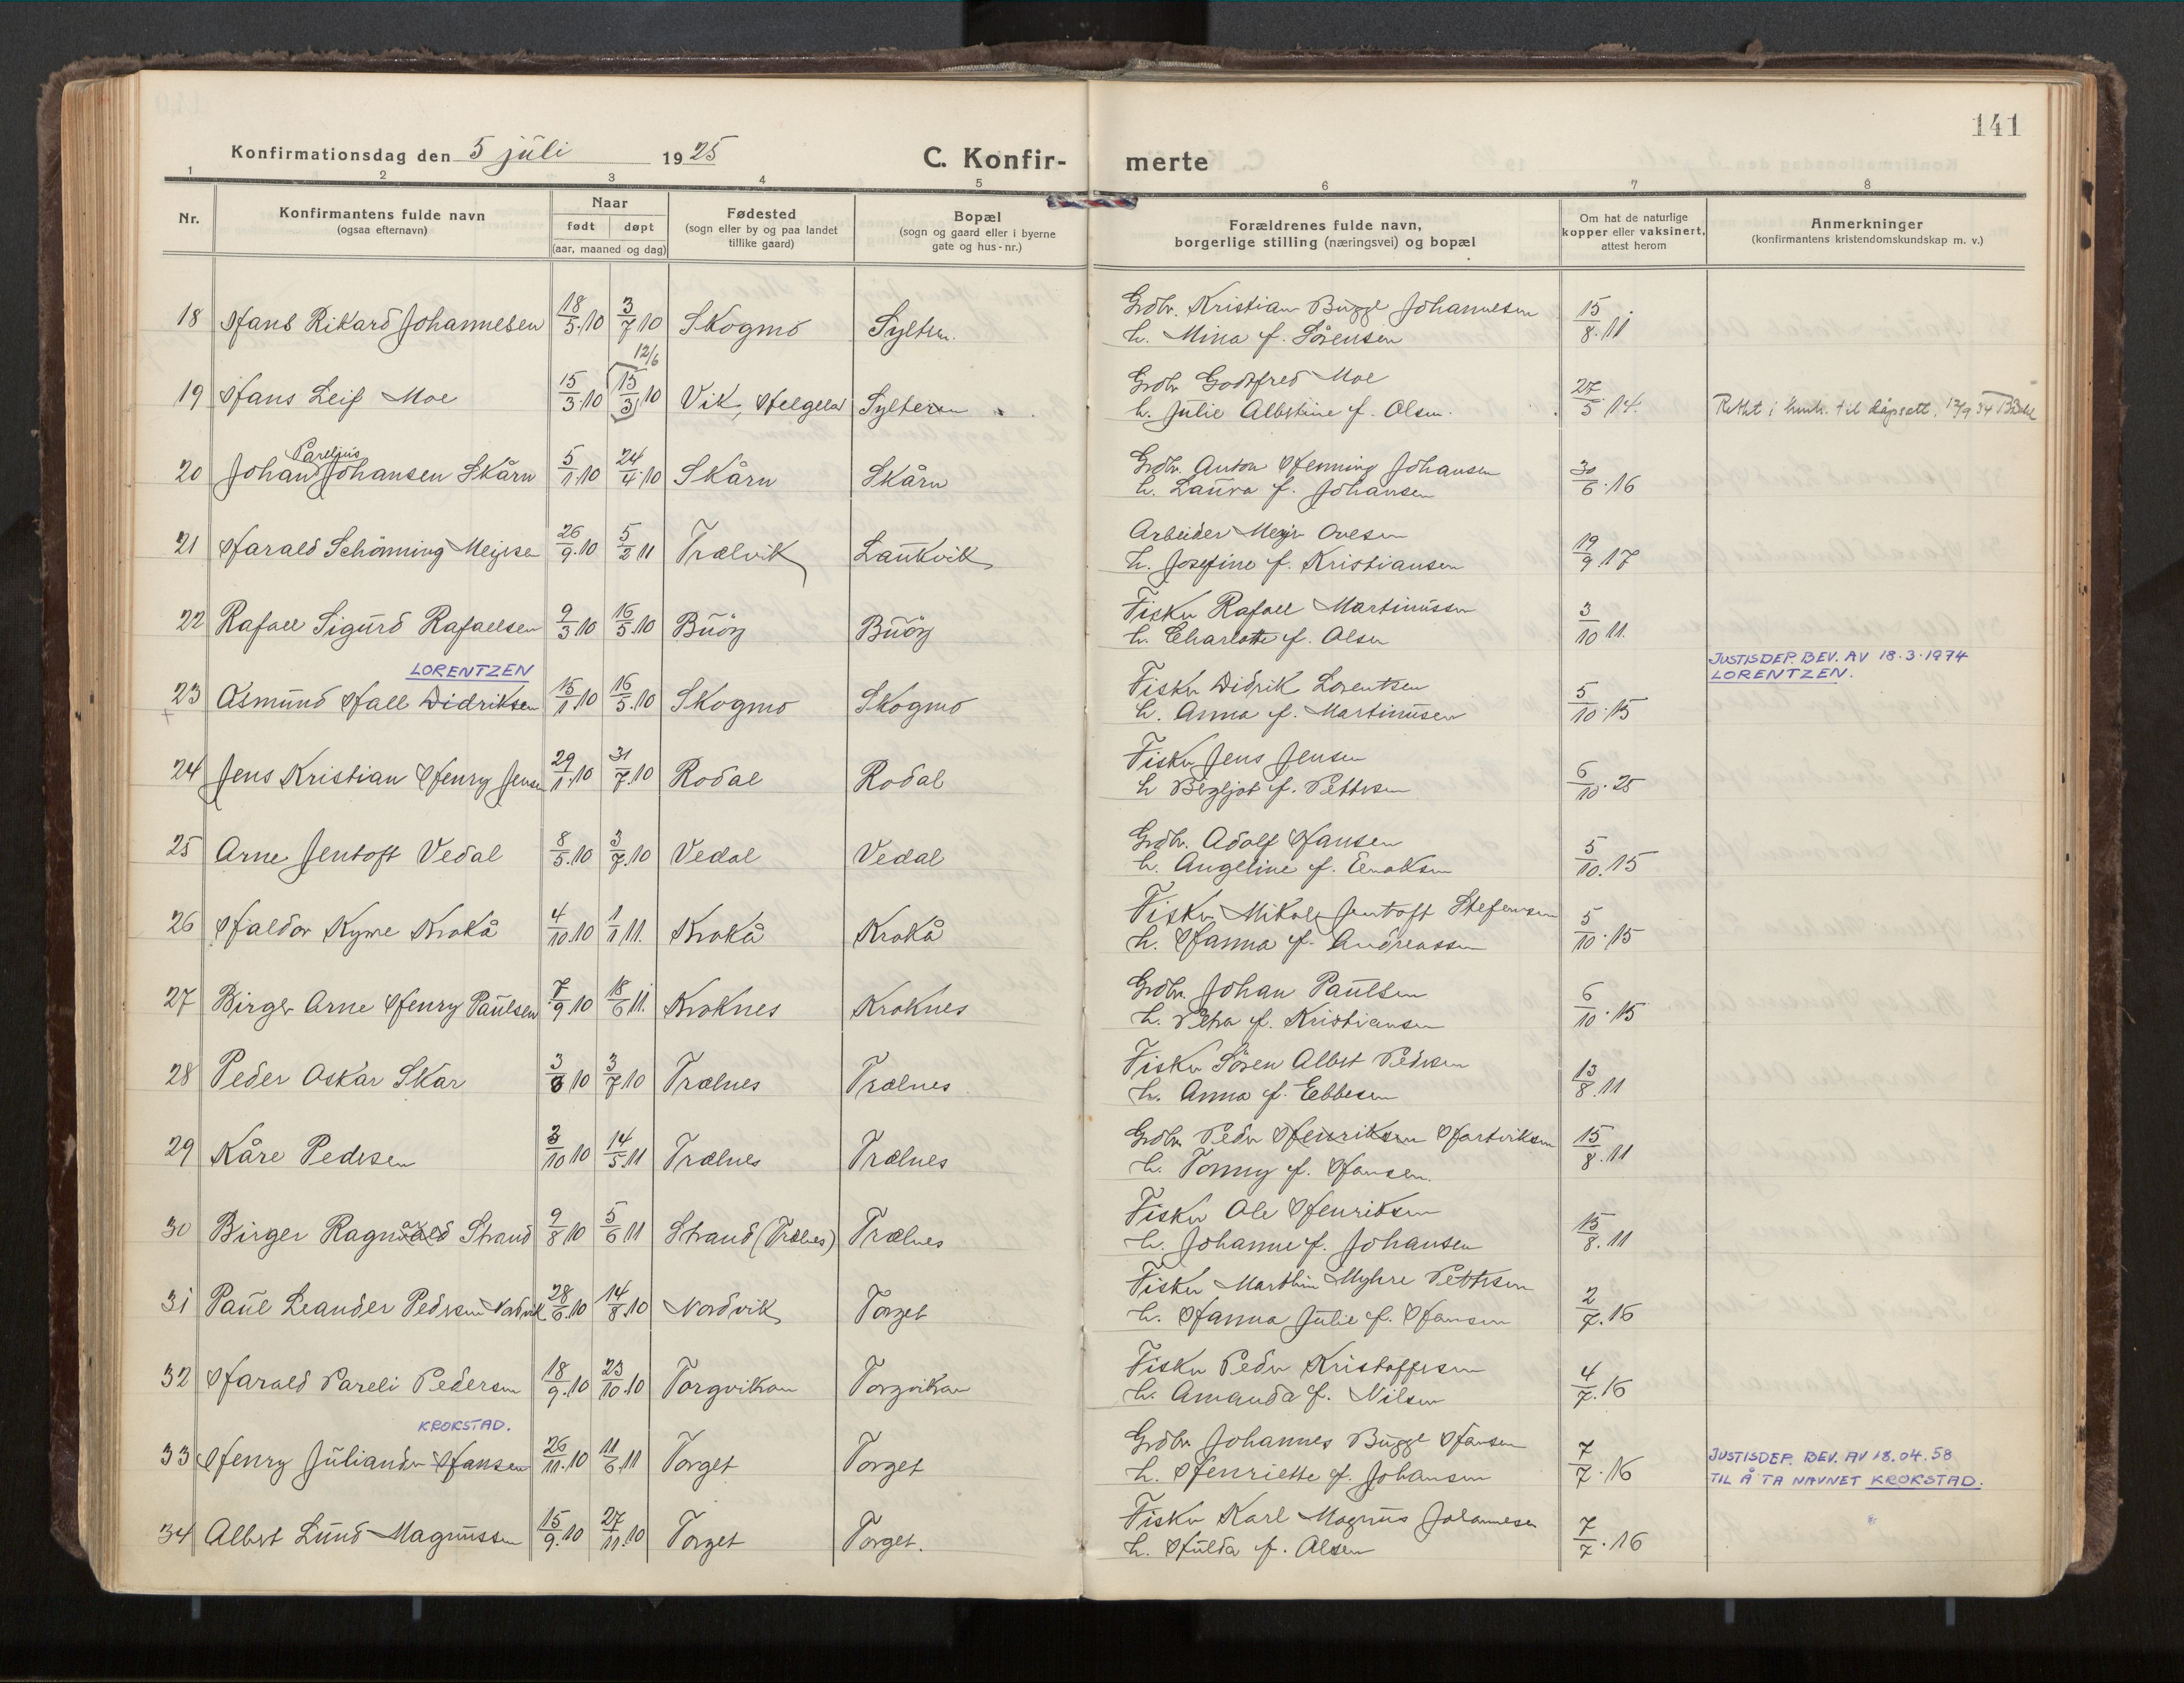 141
Konfirmationsdag den 5 juli 1925
C. Konfir- merte
1 2 3 4 5 6 7 8
Nr.
Konfirmantens fulde navn
(ogsaa efternavn)
Naar
født døpt
(aar, maaned og dag)
Fødested
(sogn eller by og paa landet
tillike gaard)
Bopæl
(sogn og gaard eller i byerne
gate og hus-nr.)
Forældrenes fulde navn,
borgerlige stilling (næringsvei) og bopæl
Om hat de naturlige
kopper eller vaksinert,
attest herom
Anmerkninger
(konfirmantens kristendomskundskap m. v.)
18 Hans Rikard Johannesen 18/5.10 3/7 10 Skogmo Sylten. Grdbr. Kristian Bugge Johannesen 15/8.11
h. Mina f. Sörensen
12/6
19 Hans Leif Moe 15/3.10 (15/3) 10 Vik, Helgeld Sylteren Grdbr. Godtfred Moe 27/5.14.
h. Julie Albertine f. Olsen. Rettet i henh. til dåpsatt. 12/9 34
Pareljus
20 Johan Johansen Skårn 5/1.10 24/4.10 Skårn Skårn Grdbr. Anton Henning Johansen 30/6.16
h. Laura f. Johansen
21 Harald Schönning Mejersen 26/9.10 5/2 11 Trælvik Laukvik Arbeider Mejer Ovesen 19/9.17
h. Josefine f. Kristiansen
22 Rafael Sigurd Rafaelsen 9/3 10 16/5.10 Buöy Buöy Fisker Rafael Martinussen 3/10 11.
h. Charlotte f. Olsen
LORENTZEN
23 Asmund Hall Didriksen 15/1.10 16/5.10 Skogmo Skogmo Fisker Didrik Lorentsen 5/10.15
h. Anna f. Martinusen
JUSTISDEP. BEV. AV 18.3.1974
LORENTZEN.
24 Jens Kristian Henry Jensen 29/1.10 31/7.10 Rodal Rodal Fisker Jens Jensen 6/10.25
h Bergljot f. Pettersen
25 Arne Jentoft Vedal 8/5.10 3/7.10 Vedal Vedal Grdbr. Adolf Hansen 5/10.15
h. Angeline f. Enoksen
26 Haldor Kyrre Krokå 4/10.10 1/1 11. Krokå Krokå Fisker Mikal Jentoft Stefensen 5/10.15
h. Hanna f. Andreassen
27 Birger Arne Henry Paulsen 7/9 10 18/6 11. Kroknes Kroknes Grdbr. Johan Paulsen 6/10.15
h. Petra f. Kristiansen
28 Peder Oskar Skar 3/6 10 3/7 10 Trælnes Trælnes Fisker Sören Albert Pedersen 13/8.11
h. Anna f. Ebbesen
29 Kåre Pedersen 3/10 10 14/5.11 Trælnes Trælnes Grdbr. Peder Henriksen Hartviksen 15/8.11
h. Tonny f. Hansen.
30 Birger Ragnvald Strand 9/8 10 5/6 11 Strand (Trælnes) Trælnes Fisker Ole Henriksen 15/8.11
h. Johanne f. Johansen
31 Paul Leander Pedersen Nordvik 28/6.10 14/8.10 Nordvik Torget Fisker Marthin Myhre Pettersen 2/7.16
h. Hanna Julie f. Hansen
32 Harald Pareli Pedersen 18/9.10 23/10.10 Torgvikan Torgvikan Fisker Peder Kristoffersen 4/7.16
h. Amanda f. Nilsen
KROKSTAD.
33 Henry Juliander Hansen 26/11.10 11/6.11 Torget Torget Grdbr Johannes Bugge Hansen 7/7.16
h. Henriette f. Johansen
JUSTISDEP. BEV. AV 18.04.58
TIL Å TA NAVNET KROKSTAD.
34 Albert Lund Magnussen 15/9.10 27/11.10 Torget Torget. Fisker Karl Magnus Johannesen 7/7.16
h. Hulda f. Olsen